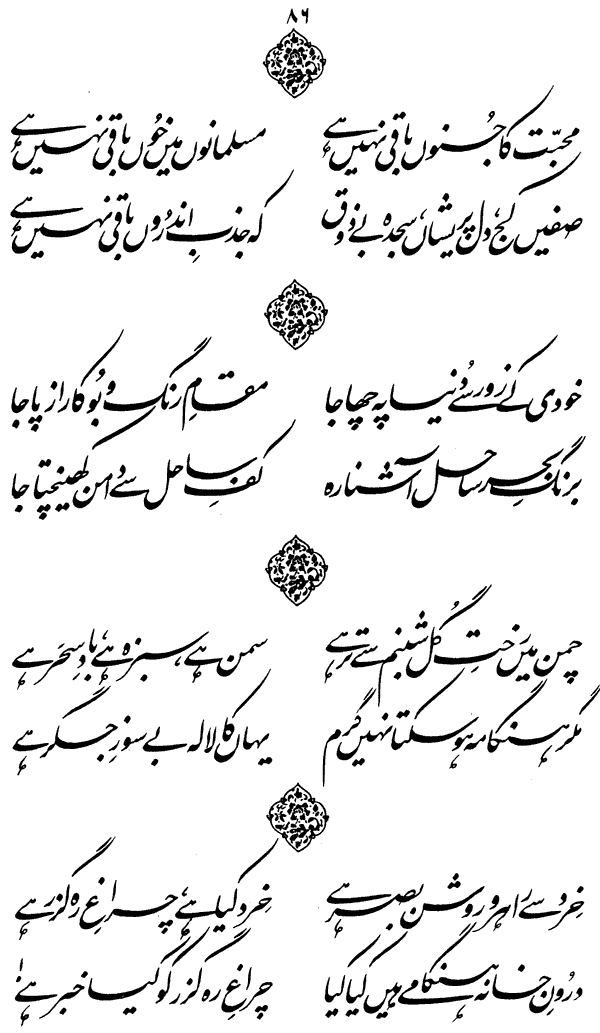 ۸۶
محبّت کا جُنوں باقی نہیں ہے مسلمانوں میں خُوں باقی نہیں ہے
صفیں کج، دل پریشاں، سجدہ بے ذوق کہ جذبِ اندرُوں باقی نہیں ہے
خودی کے زور سے دُنیا پہ چھا جا مقامِ رنگ و بُو کا راز پا جا
برنگِ بحر ساحل آشنا رہ کفِ ساحل سے دامن کھینچتا جا
چمن میں رختِ گُل شبنم سے تر ہے سمن ہے، سبزہ ہے، بادِ سحَر ہے
مگر ہنگامہ ہو سکتا نہیں گرم یہاں کا لالہ بے سوزِ جگر ہے
خرد سے راہرو روشن بصر ہے خِرد کیا ہے، چراغِ رہ گزر ہے
درُونِ خانہ ہنگامے ہیں کیا کیا چراغِ رہ گزر کو کیا خبر ہے!